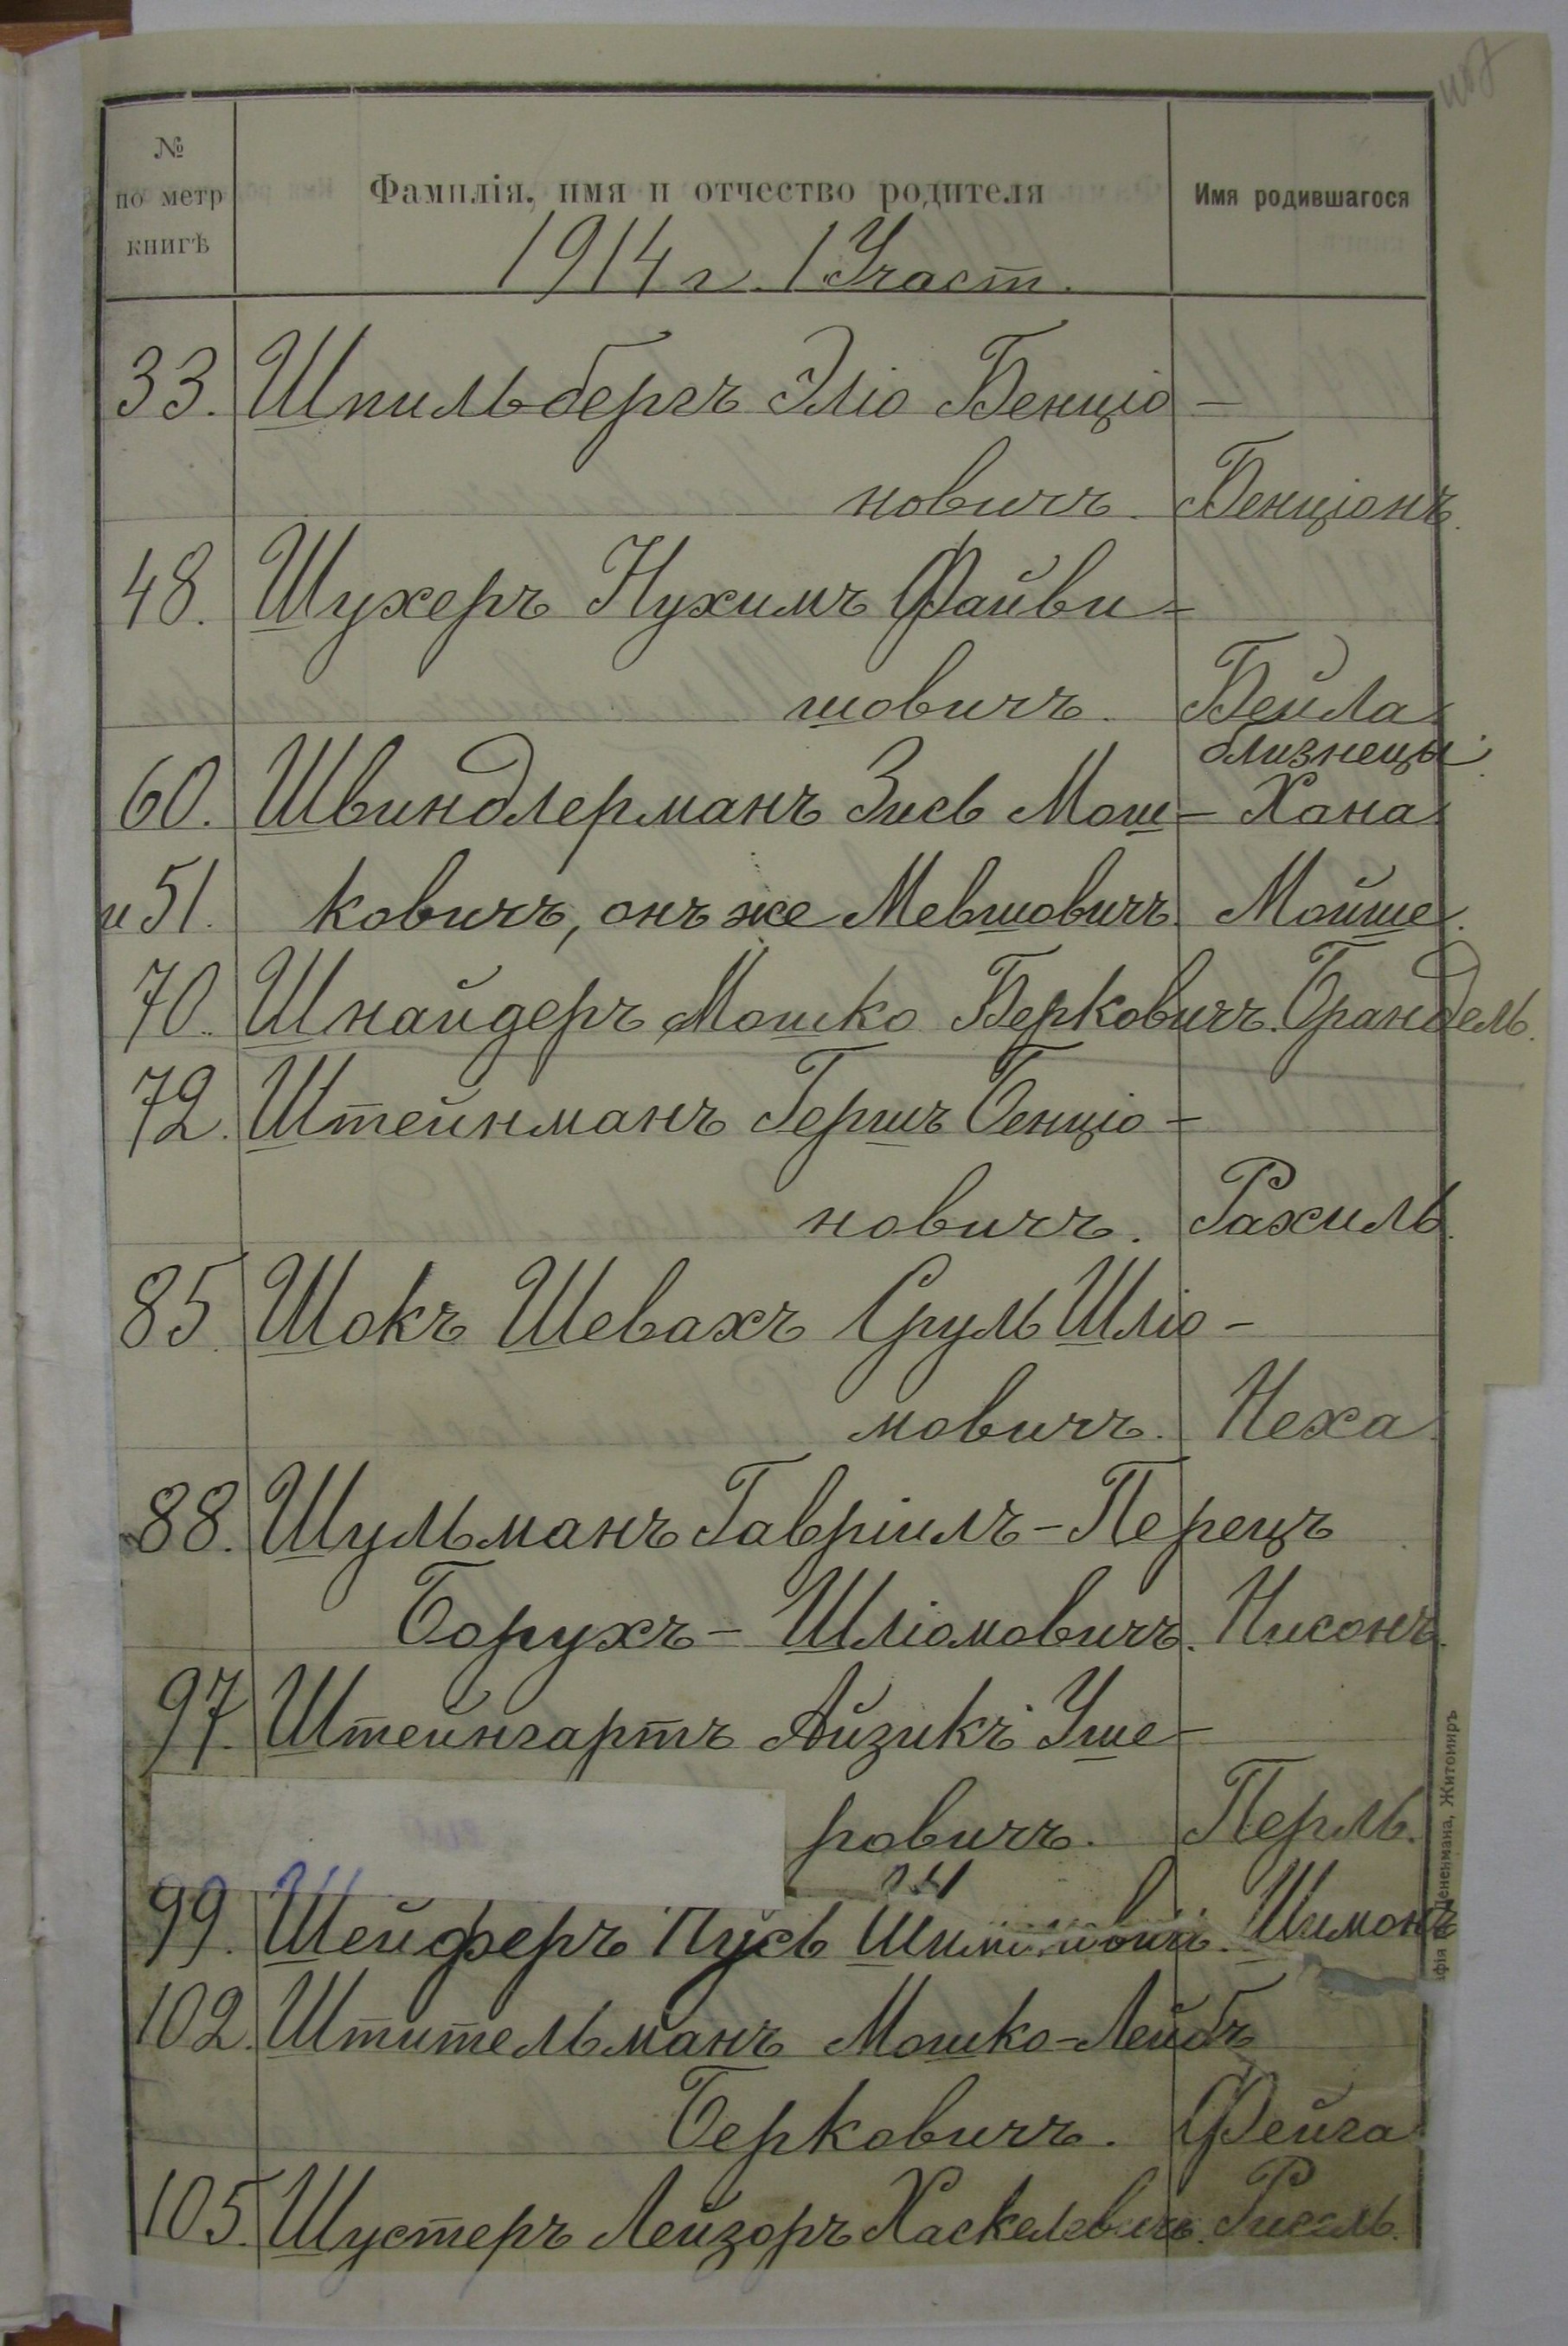 № по метр книгѣ Фамилія, имя и отчество родителя Имя родившагося
1914 г. 1 Участ.
33. Шпильбергъ Эліо Бенціо-
новичъ. Бенціонъ.
48. Шухеръ Нухимъ Файви-
шовичъ. Бейла
близнецы.
60. Швиндлерманъ Зись Мош- Хана
и 51. ковичъ, онъ же Мевшовичъ. Мойше.
70. Шнайдеръ Мошко Берковичъ. Брандель.
72. Штейнманъ Гершъ Бенціо-
новичъ. Рахиль.
85. Шокъ Шевахъ Сруль Шліо-
мовичъ. Неха
88. Шульманъ Гавріилъ-Перецъ
Борухъ-Шліомовичъ. Нисонъ.
97. Штейнгартъ Айзикъ Уше-
ровичъ. Перль.
99. Шейферъ Шимонъ
102. Штительманъ Мошко-Лейбъ
Берковичъ. Фейга
105. Шустеръ Лейзоръ Хаскелевичъ.
Житомиръ